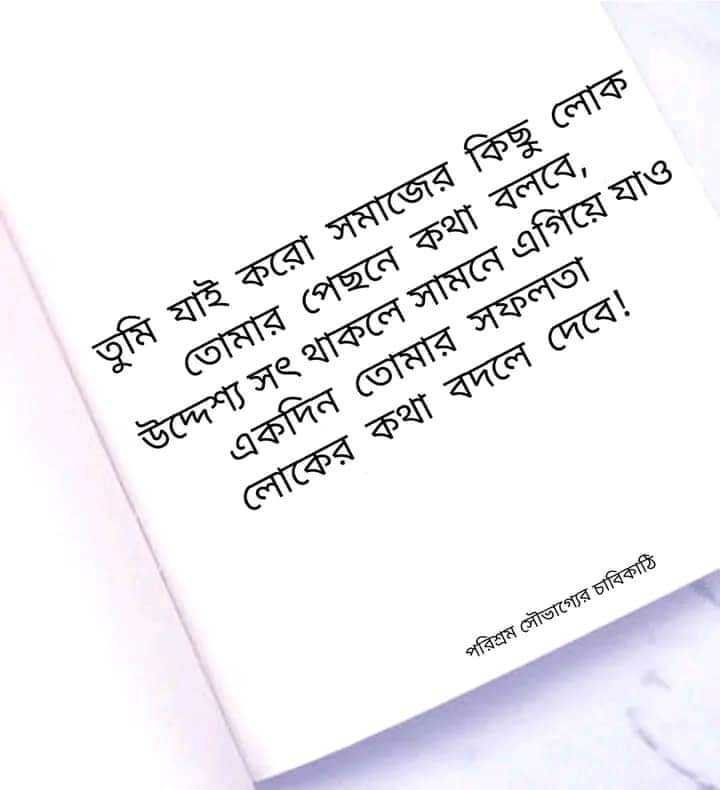 তুমি যাই করো সমাজের কিছু লোক
তোমার পেছনে কথা বলবে,
উদ্দেশ্য সৎ থাকলে সামনে এগিয়ে যাও
একদিন তোমার সফলতা
লোকের কথা বদলে দেবে!
পরিশ্রম সৌভাগ্যের চাবিকাঠি